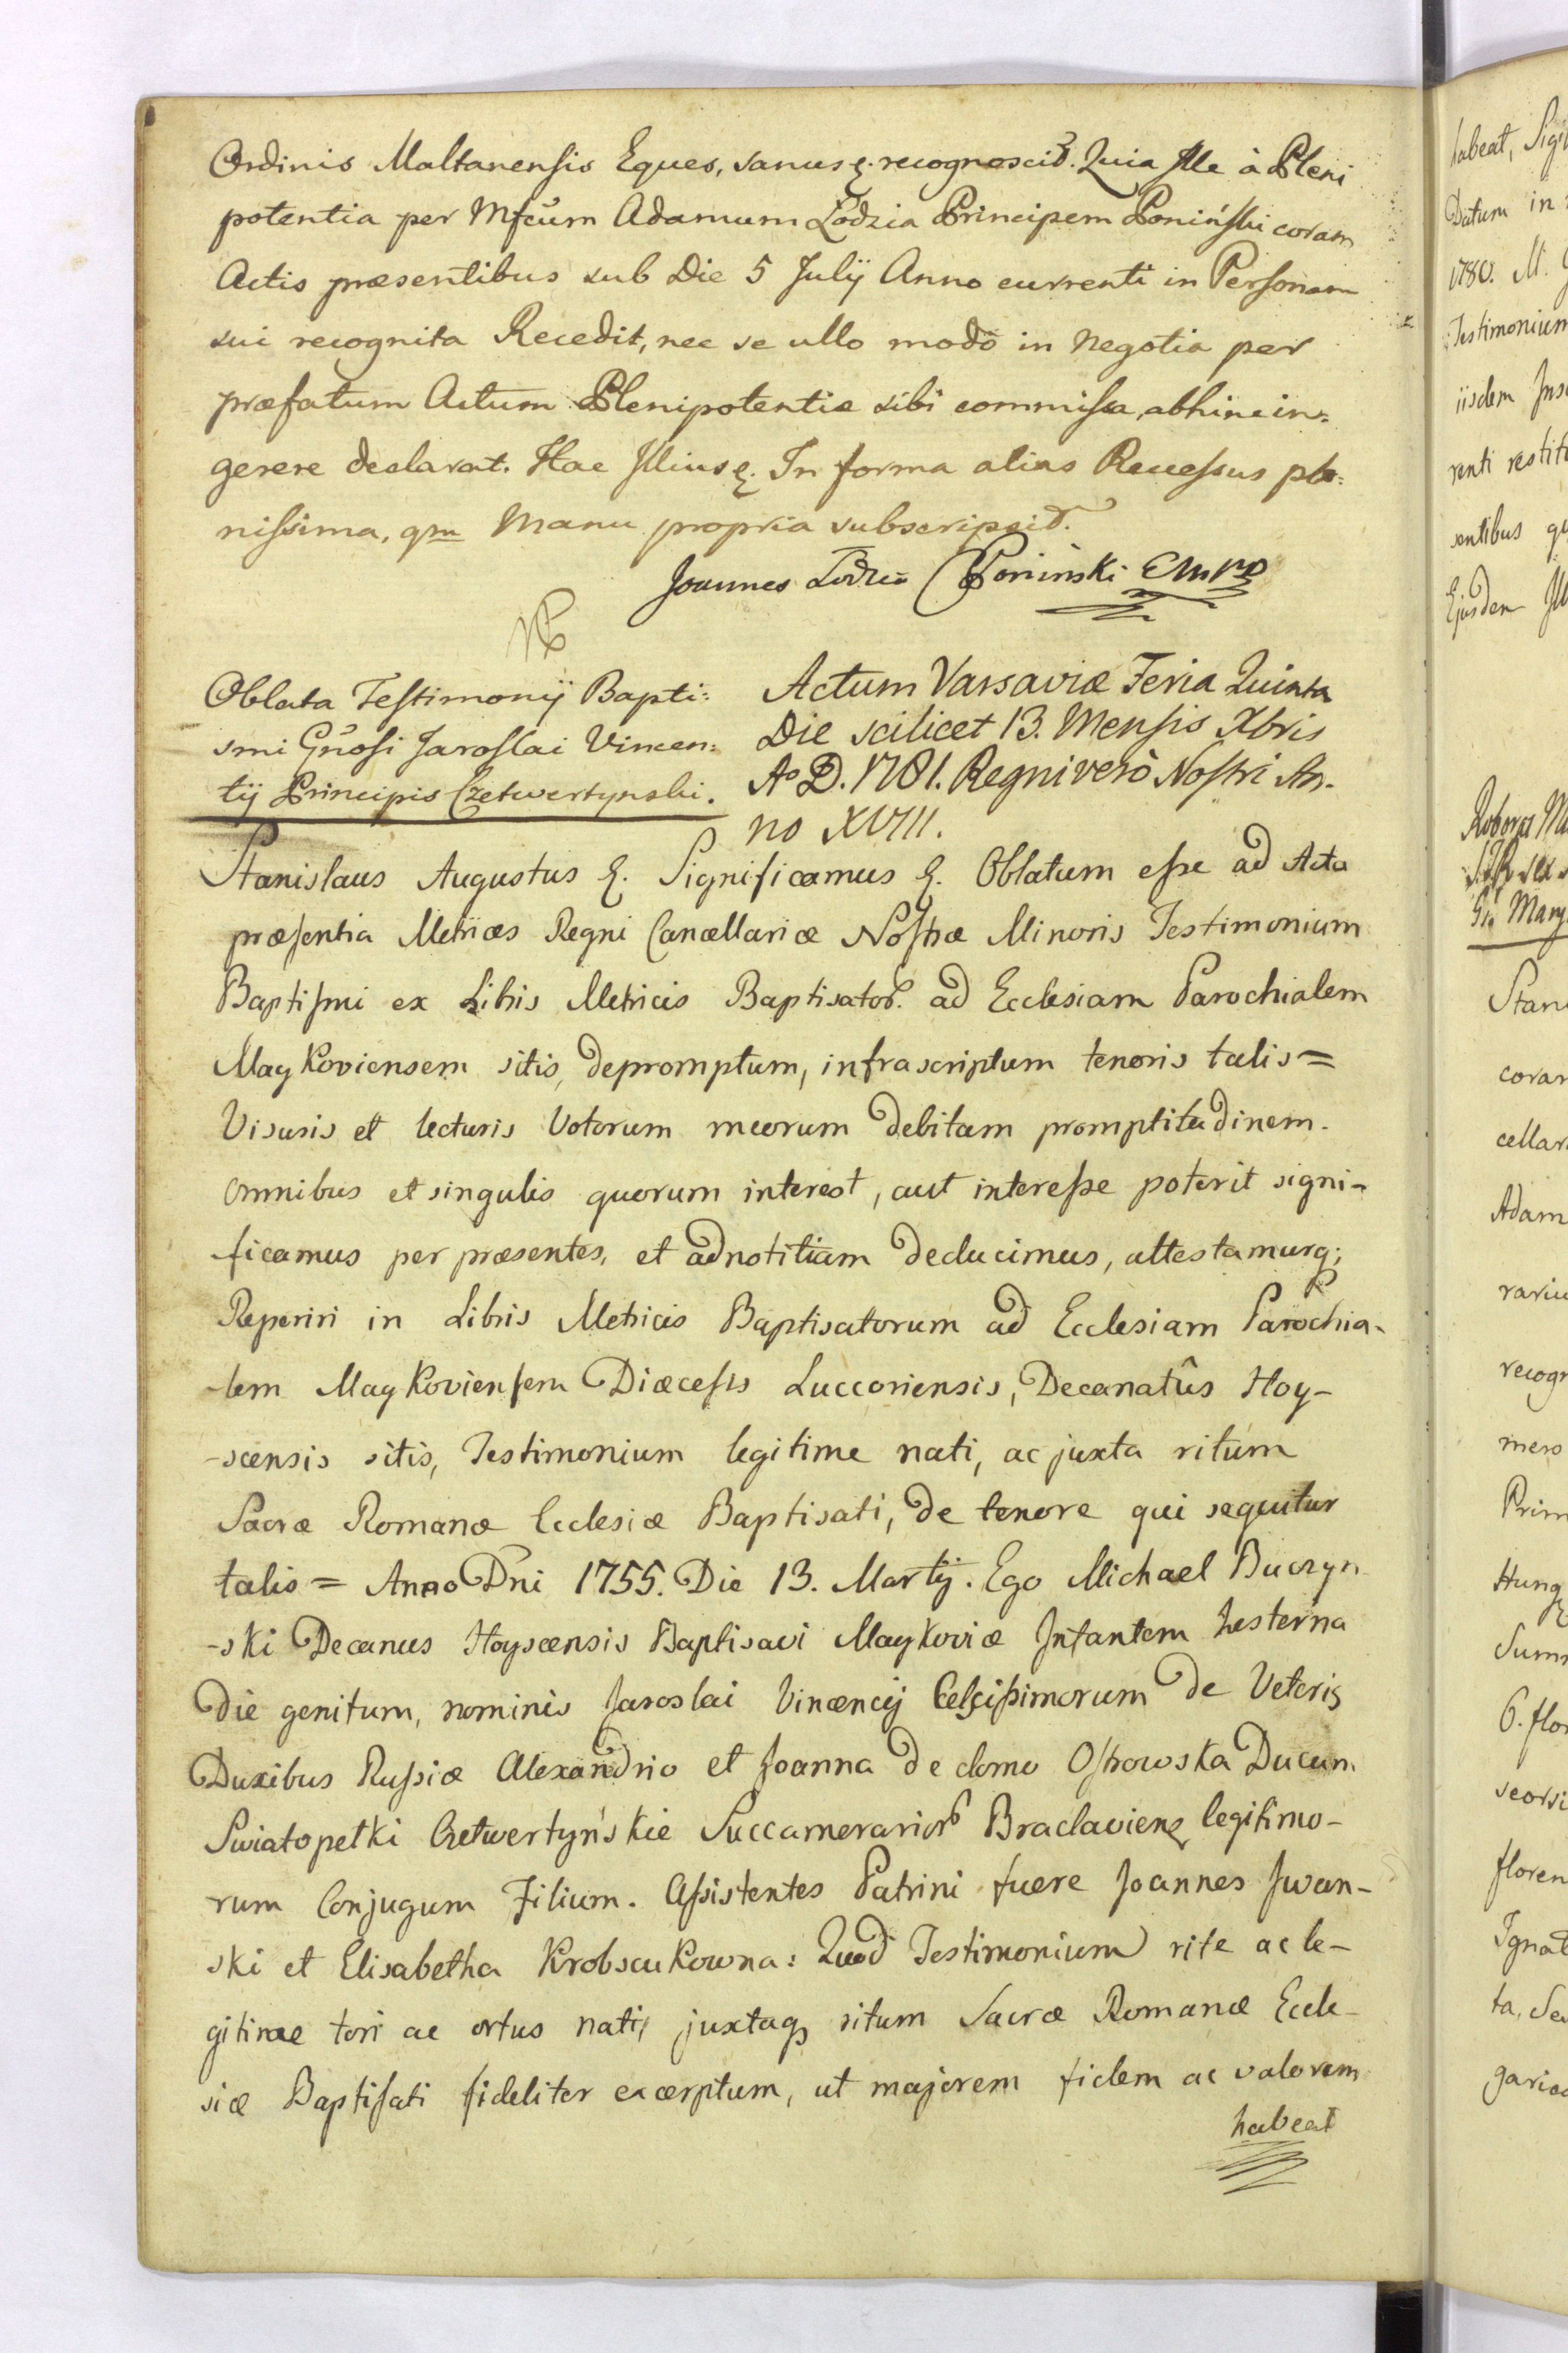 Ordinis Maltanensis Eques, sanus &. recognoscit. Quia Ille à Pleni
potentia per Mfcum Adamum Łodzia Principem Poniński coram
Actis præsentibus sub Die 5 Julÿ Anno currenti in Personam
sui recognita Recedit, nec se ullo modo in Negotia per
præfatum Actum Plenipotentiæ sibi commissa, abhinc in=
gerere declarat. Hac Illius &. In forma alias Recessus ple=
nissima, qm Manu propria subscripsit.
Joannes Łodzia Poniński
Oblata Testimonÿ Bapti=
smi Gnosi Jaroslai Vincen=
tÿ Principis Czetwertynski.
Actum Varsaviæ Feria Quinta
Die scilicet 13. Mensis Xbris
Ao D. 1781. Regni verò Nostri An-
no XVIII.
Stanislaus Augustus &. Significamus &. Oblatum esse ad Acta
præsentia Metrices Regni Cancellariæ Nostræ Minoris Testimonium
Baptismi ex Libris Metricis Baptisator. ad Ecclesiam Parochialem
Maykoviensem sitis, depromptum, infrascriptum tenoris talis =
Visuris et lecturis Votorum meorum debitam promptitudinem.
Omnibus et singulis quorum interest, aut interesse poterit signi-
ficamus per præsentes, et ad notitiam deducimus, attestamurq;
Reperiri in Libris Metricis Baptisatorum ad Ecclesiam Parochia-
-lem Maykoviensem Diæcesis Luccoriensis, Decanatûs Hoy-
-scensis sitis, Testimonium legitime nati, ac juxta ritum
Sacræ Romanæ Ecclesiæ Baptisati, de tenore qui sequitur
talis = Anno Dni 1755. Die 13. Martÿ. Ego Michael Buczyn
-ski Decanus Hoyscensis Baptisavi Maykoviæ Infantem hesterna
Die genitum, nominis Jaroslai Vincencÿ Celsissimorum de Veteris
Duxibus Russiæ Alexandrio et Joanna de domo Ostrowska Ducum
Swiatopełki Czetwertyńskie Succamerarior Braclaviens legitimo-
rum Conjugum Filium. Assistentes Patrini fuere Joannes Iwan-
ski et Elisabetha Krobscukowna: Quod Testimonium rite ac le-
gitimæ tori ac ortus nati, juxtaq ritum Sacræ Romanæ Eccle-
siæ Baptisati fideliter excerptum, ut majorem fidem ac valorem
habeat
habeat, Sigi
Datum in
1780. M.
Testimonium
iisdem Ins
renti restit
sentibus
Ejusdem
Stan
coram
cellar
Adam
rariu
recogn
mero
Prim
Hung
Sum
6. flor
seorsi
floren
Ignat
ta, Se
gariæ